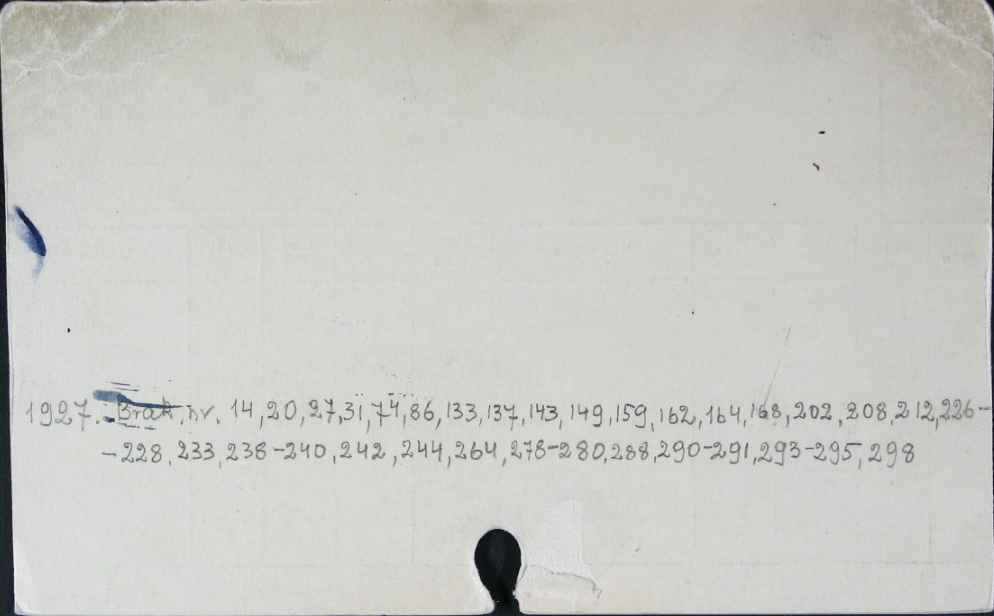 1927. Brak nr. 14, 20, 27, 31, 74, 86, 133, 137, 143, 149, 159, 162, 164, 168, 202, 208, 212, 226-
-228, 233, 238-240, 242, 244, 264, 278-280, 288, 290-291, 293-295, 298